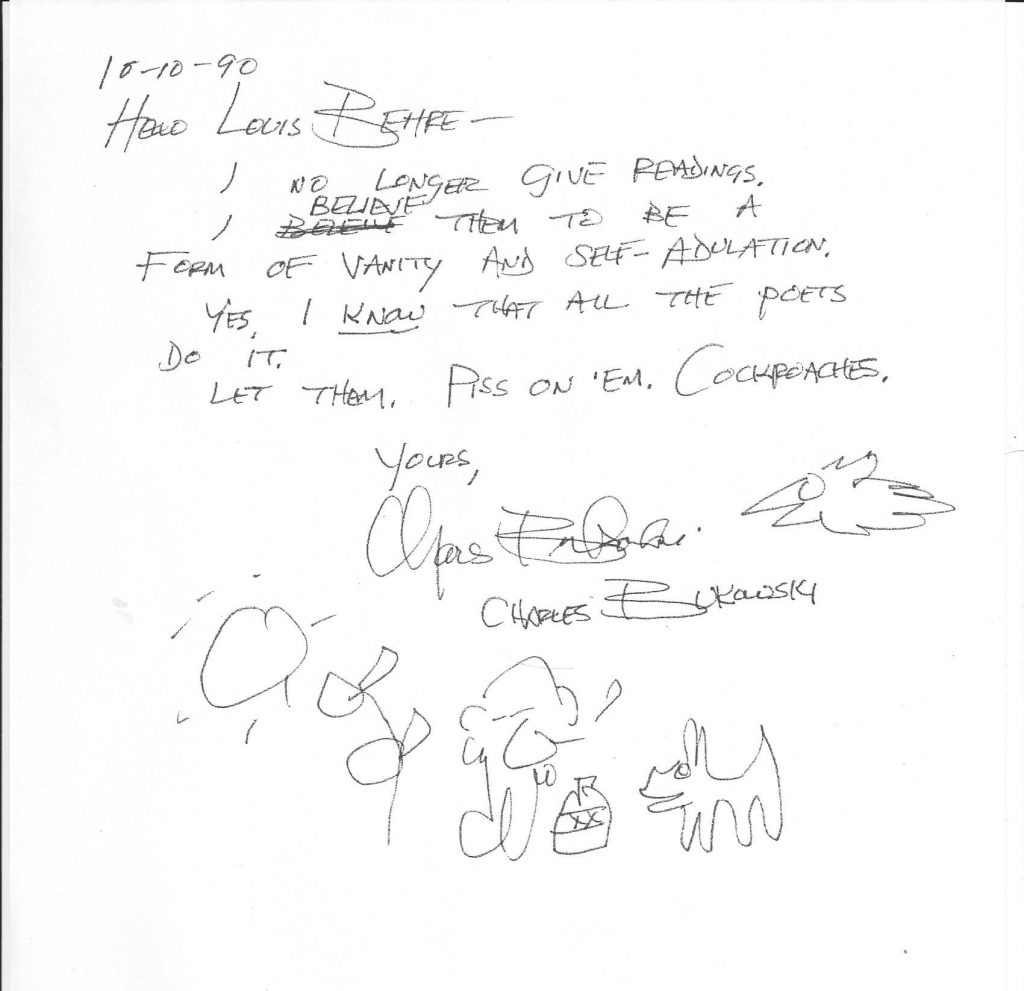 10-10-90
HELLO LOUIS BEHRE—
I NO LONGER GIVE READINGS.
BELIEVE
I BELEIVE THEM TO BE A
FORM OF VANITY AND SELF-ADULATION.
YES, I KNOW THAT ALL THE POETS
DO IT.
LET THEM. PISS ON 'EM. COCKROACHES.
YOURS,
Charles Bukowski
CHARLES BUKOWSKI
XX